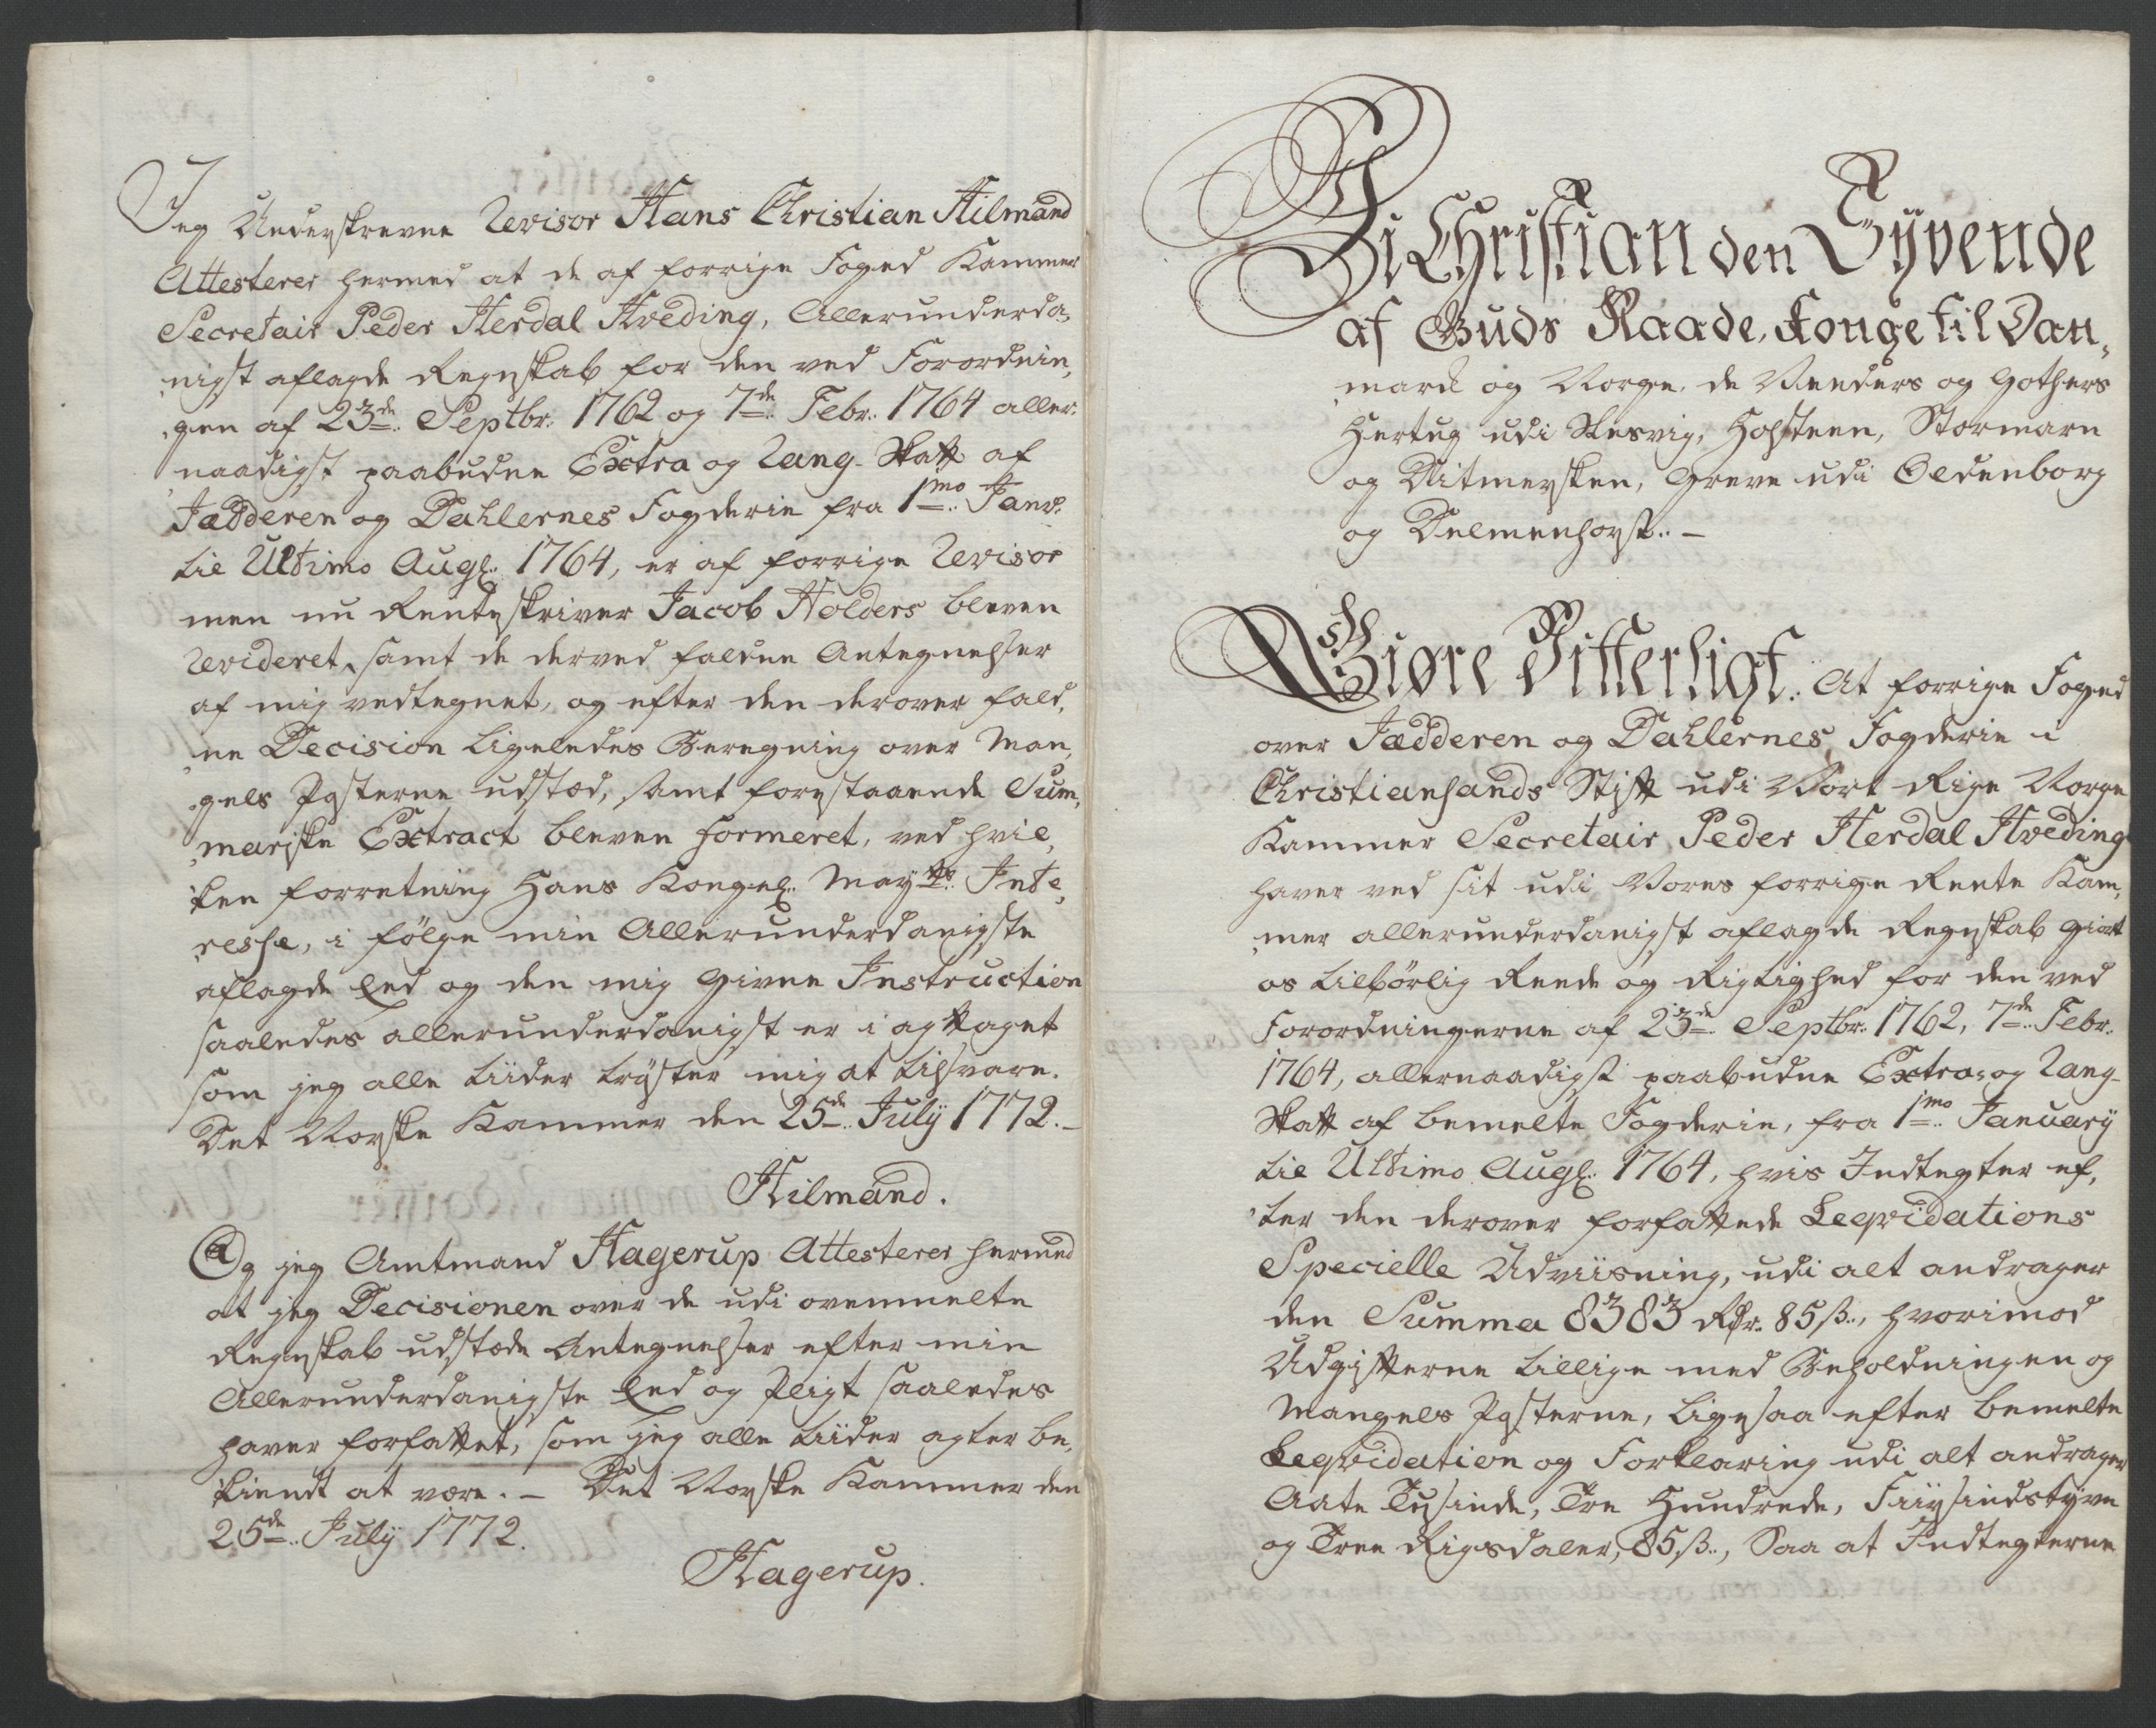 Jeg Underskrevne Revisor Hans Christian Hilmand
Attesterer hermed at de af forrige Foged Kammer
Secretair Peder Herdal Hveding, Allerunderda,
nigst aflagde Regnskab for den ved Forordnin,
gen af 23de Septbr. 1762 og 7de Febr. 1764 aller,
naadigst paabudne Extra og Rang-Skatt af
Jædderen og Dahlernes Fogderie fra 1mo Janv.
til Ultimo Aug. 1764, er af forrige Revisor
men nu Renteskriver Jacob Holders bleven
Revideret, samt de derved faldne Antegnelser
af mig vedtegnet, og efter den derover fald,
ne Decision ligeledes Beregning over Man,
gels Posterne udstæd, samt forestaaende Sum,
mariske Extract bleven formeret, ved hvil,
ken forretning Hans Kongel. Mayts. Inte,
resse, i følge min Allerunderdanigste
aflagde Eed og den mig givne Instruction
saaledes allerunderdanigst er i agttaget
som jeg alle tiider trøster mig at tilsvare.
Det Norske Kammer den 25de July 1772.
Hilmand.
Og jeg Amtmand Hagerup Attesterer hermed
at jeg Decisionen over de udi ovenmelte
Regnskab udstæde Antegnelser efter min
Allerunderdanigste Eed og Pligt saaledes
haver forfattet, som jeg alle tiider agter be,
kiendt at være. – Det Norske Kammer den
25de July 1772.
Hagerup.
Vi Christian den Syvende
af Guds Naade, Konge til Dan,
mark og Norge, de Venders og Gothers
Hertug udi Slesvig, Holsteen, Stormarn
og Ditmersken, Greve udi Oldenborg
og Delmenhorst. –
Giøre Vitterligt. At forrige Foged
over Jædderen og Dahlernes Fogderie i
Christiansands Stift udi Vort Rige Norge
Kammer Secretair Peder Herdal Hveding
haver ved sit udi Vores forrige Rente Kam,
mer allerunderdanigst aflagde Regnskab giort
os tilbørlig Rede og Rigtighed for den ved
Forordningerne af 23de Septbr. 1762, 7de Febr.
1764, allernaadigst paabudne Extra- og Rang-
Skatt af bemelte Fogderie, fra 1mo January
til Ultimo Aug. 1764, hvis Indtegter ef,
ter den derover forfattede Leqvidations
Specielle Udviisning, udi alt andrager
den Summa 8383 Rdr. 85 ß., hvorimod
Udgifterne tillige med Beholdningen og
Mangels Posterne, ligesaa efter bemelte
Leqvidation og Forklaring udi alt andrager
Aate Tusinde, Tre Hundrede, Fiirsindstyve
og Tree Rigsdaler, 85 ß., Saa at Indtegterne